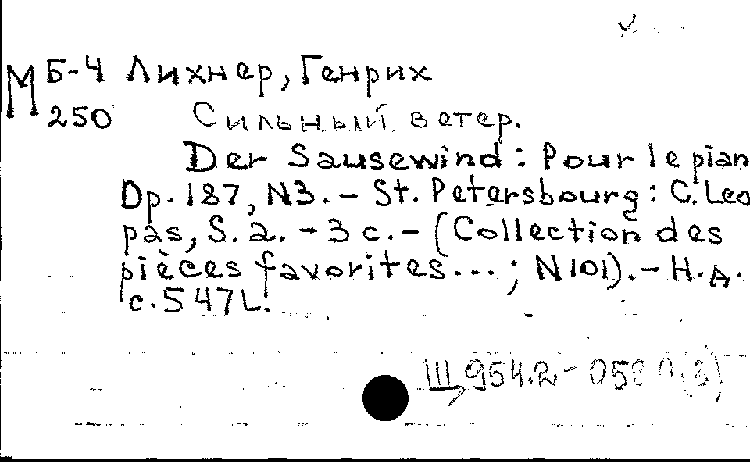 М Б-4 Лихнер, Генрих
250 Сильный ветер.
Der Sausewind: Pour le pian
Op. 187, N3. – St. Petersbourg: C. Leo
pas, S. a. – 3 c. – (Collection des
pièces favorites...; N 101). – Н. д.
c. 547 L.
III 954.2 –